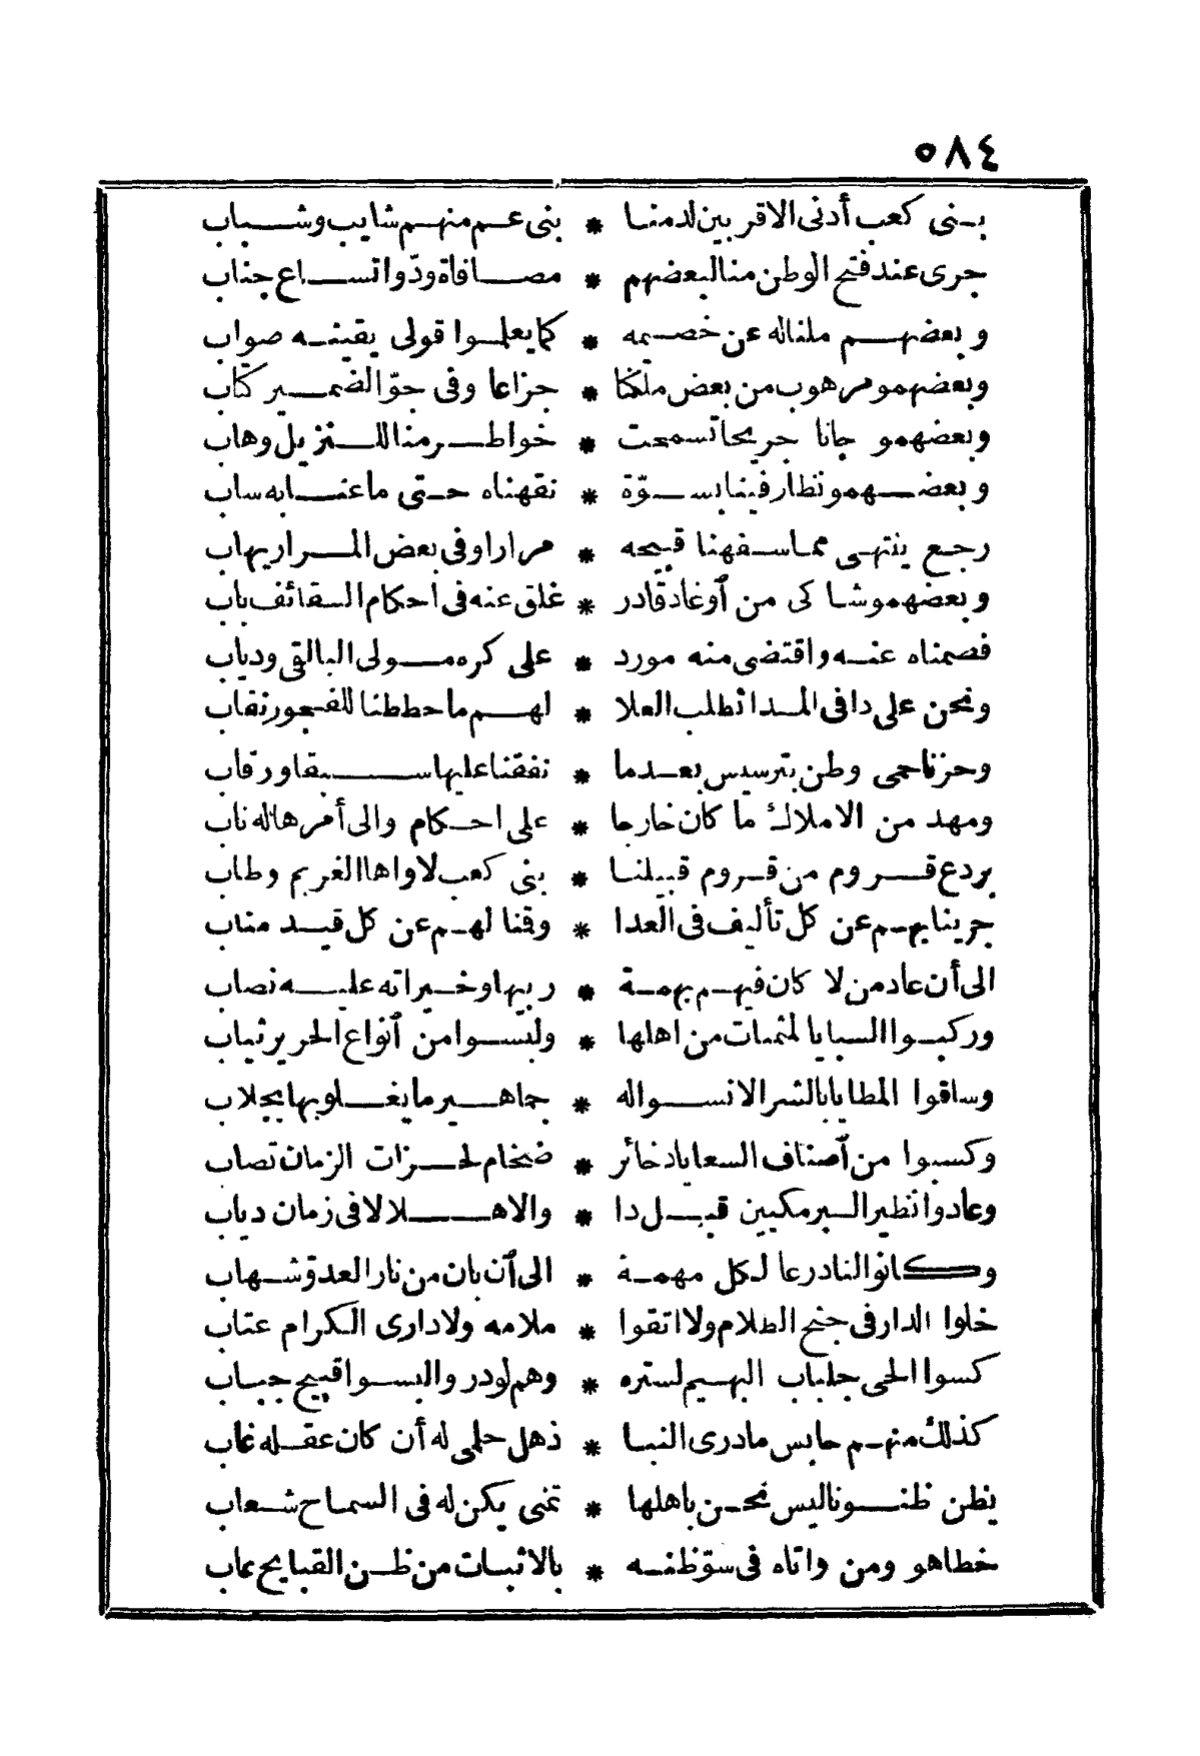 ٥٨٤
بنى كعب أدنى الاقربين لدمنا * بنى عم منهم شايب وشباب
جرى عند فتح الوطن منا لبعضهم * مصافاة ودّ واتساع جناب
وبعضهم ملناله عن خصيمه * كما يعلموا قولى يقينه صواب
وبعضهمو مرهوب من بعض ملكنا * جزاعا وفى جوّ الضمير كتاب
وبعضهمو جانا جريحا تسمحت * خواطر منا للنزيل وهاب
وبعضهمو نظار فينا بسوّة * نقهناه حتى ما عنا به ساب
رجع ينتهى مما سفهنا قبيحه * مرارا وفى بعض المرار يهاب
وبعضهمو شاكى من أوغاد قادر * غلق عنه فى احكام السقائف باب
فصمناه عنه واقتضى منه مورد * على كره مولى البالقى ودياب
ونحن على دافى المدا نطلب العلا * لهم ما حططنا للفجور نقاب
وحزنا حمى وطن بترسيس بعدما * نفقنا عليها سبقا ورقاب
ومهد من الاملاك ما كان خارجا * على احكام والى أمرها له ناب
بردع قروم من قروم قبيلنا * بنى كعب لاواها الغريم وطاب
جرينا بهم عن كل تأليف فى العدا * وقنا لهم عن كل قيد مناب
الى أن عاد من لا كان فيهم بهمة * ربيها وخيراته عليه نصاب
وركبوا السبايا المثمنات من اهلها * ولبسوا من أنواع الحرير ثياب
وساقوا المطايا بالشرا لا نسواله * جماهير ما يغلو بها بجلاب
وكسبوا من أصناف السعايا ذخائر * ضخام لحزات الزمان تصاب
وعادوا نظير البرمكيين قبل دا * والا هلالا فى زمان دياب
وكانوا لنا درعا لكل مهمة * الى أن بان من نار العدوّ شهاب
خلوا الدار فى جنح الظلام ولا اتقوا * ملامه ولا دارى الكرام عتاب
كسوا الحى جلباب البهيم لستره * وهم لو دروا لبسوا قبيح جباب
كذلك منهم حابس مادرى النبا * ذهل حلمى له أن كان عقله غاب
يظن ظنونا ليس نحن باهلها * تمنى يكن له فى السماح شعاب
خطا هو ومن واتاه فى سوّ ظنه * بالاثبات من ظن القبايح عاب